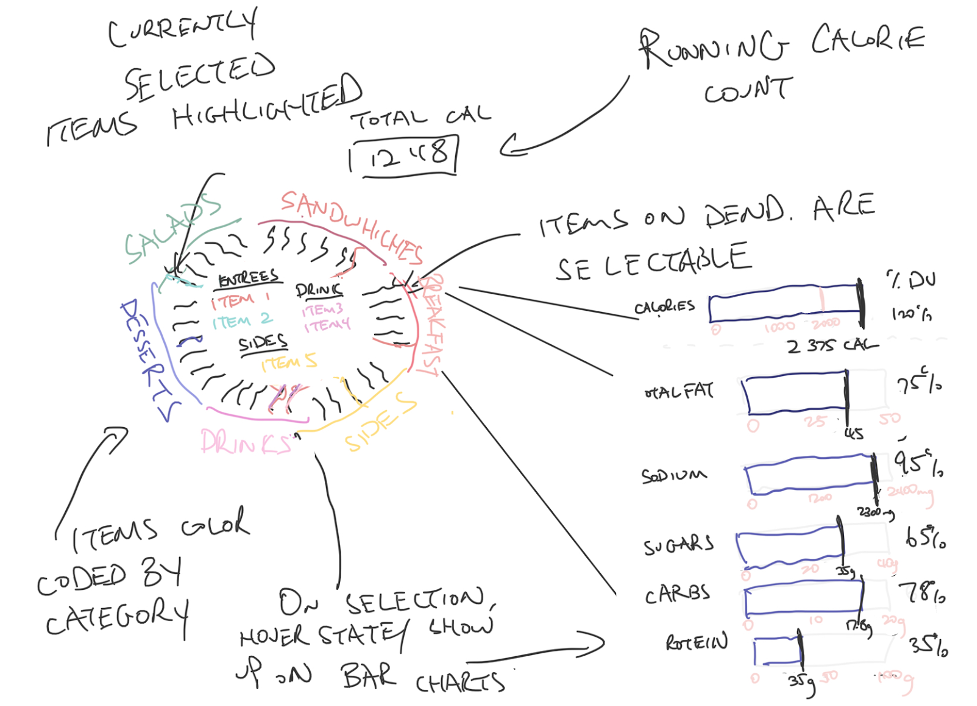 CURRENTLY
SELECTED
ITEMS HIGHLIGHTED
RUNNING CALORIE
COUNT
TOTAL CAL
1248
SALADS
SANDWHICHES
BREAKFAST
SIDES
DRINKS
DESSERTS
ENTREES
ITEM 1
ITEM 2
DRINK
ITEM3
ITEM4
SIDES
ITEM 5
ITEMS ON DEND. ARE
SELECTABLE
% DV
CALORIES
120%
0 1000 2000
2375 CAL
OTALFAT
75%
0 25 50
45
SODIUM
95%
0 1200 2400mg
2300mg
SUGARS
65%
0 20 40g
35g
CARBS
78%
0 10 20g
ROTEIN
35%
0 50 100g
35g
ITEMS COLOR
CODED BY
CATEGORY
ON SELECTION,
HOVER STATE/ SHOW
UP ON BAR CHARTS